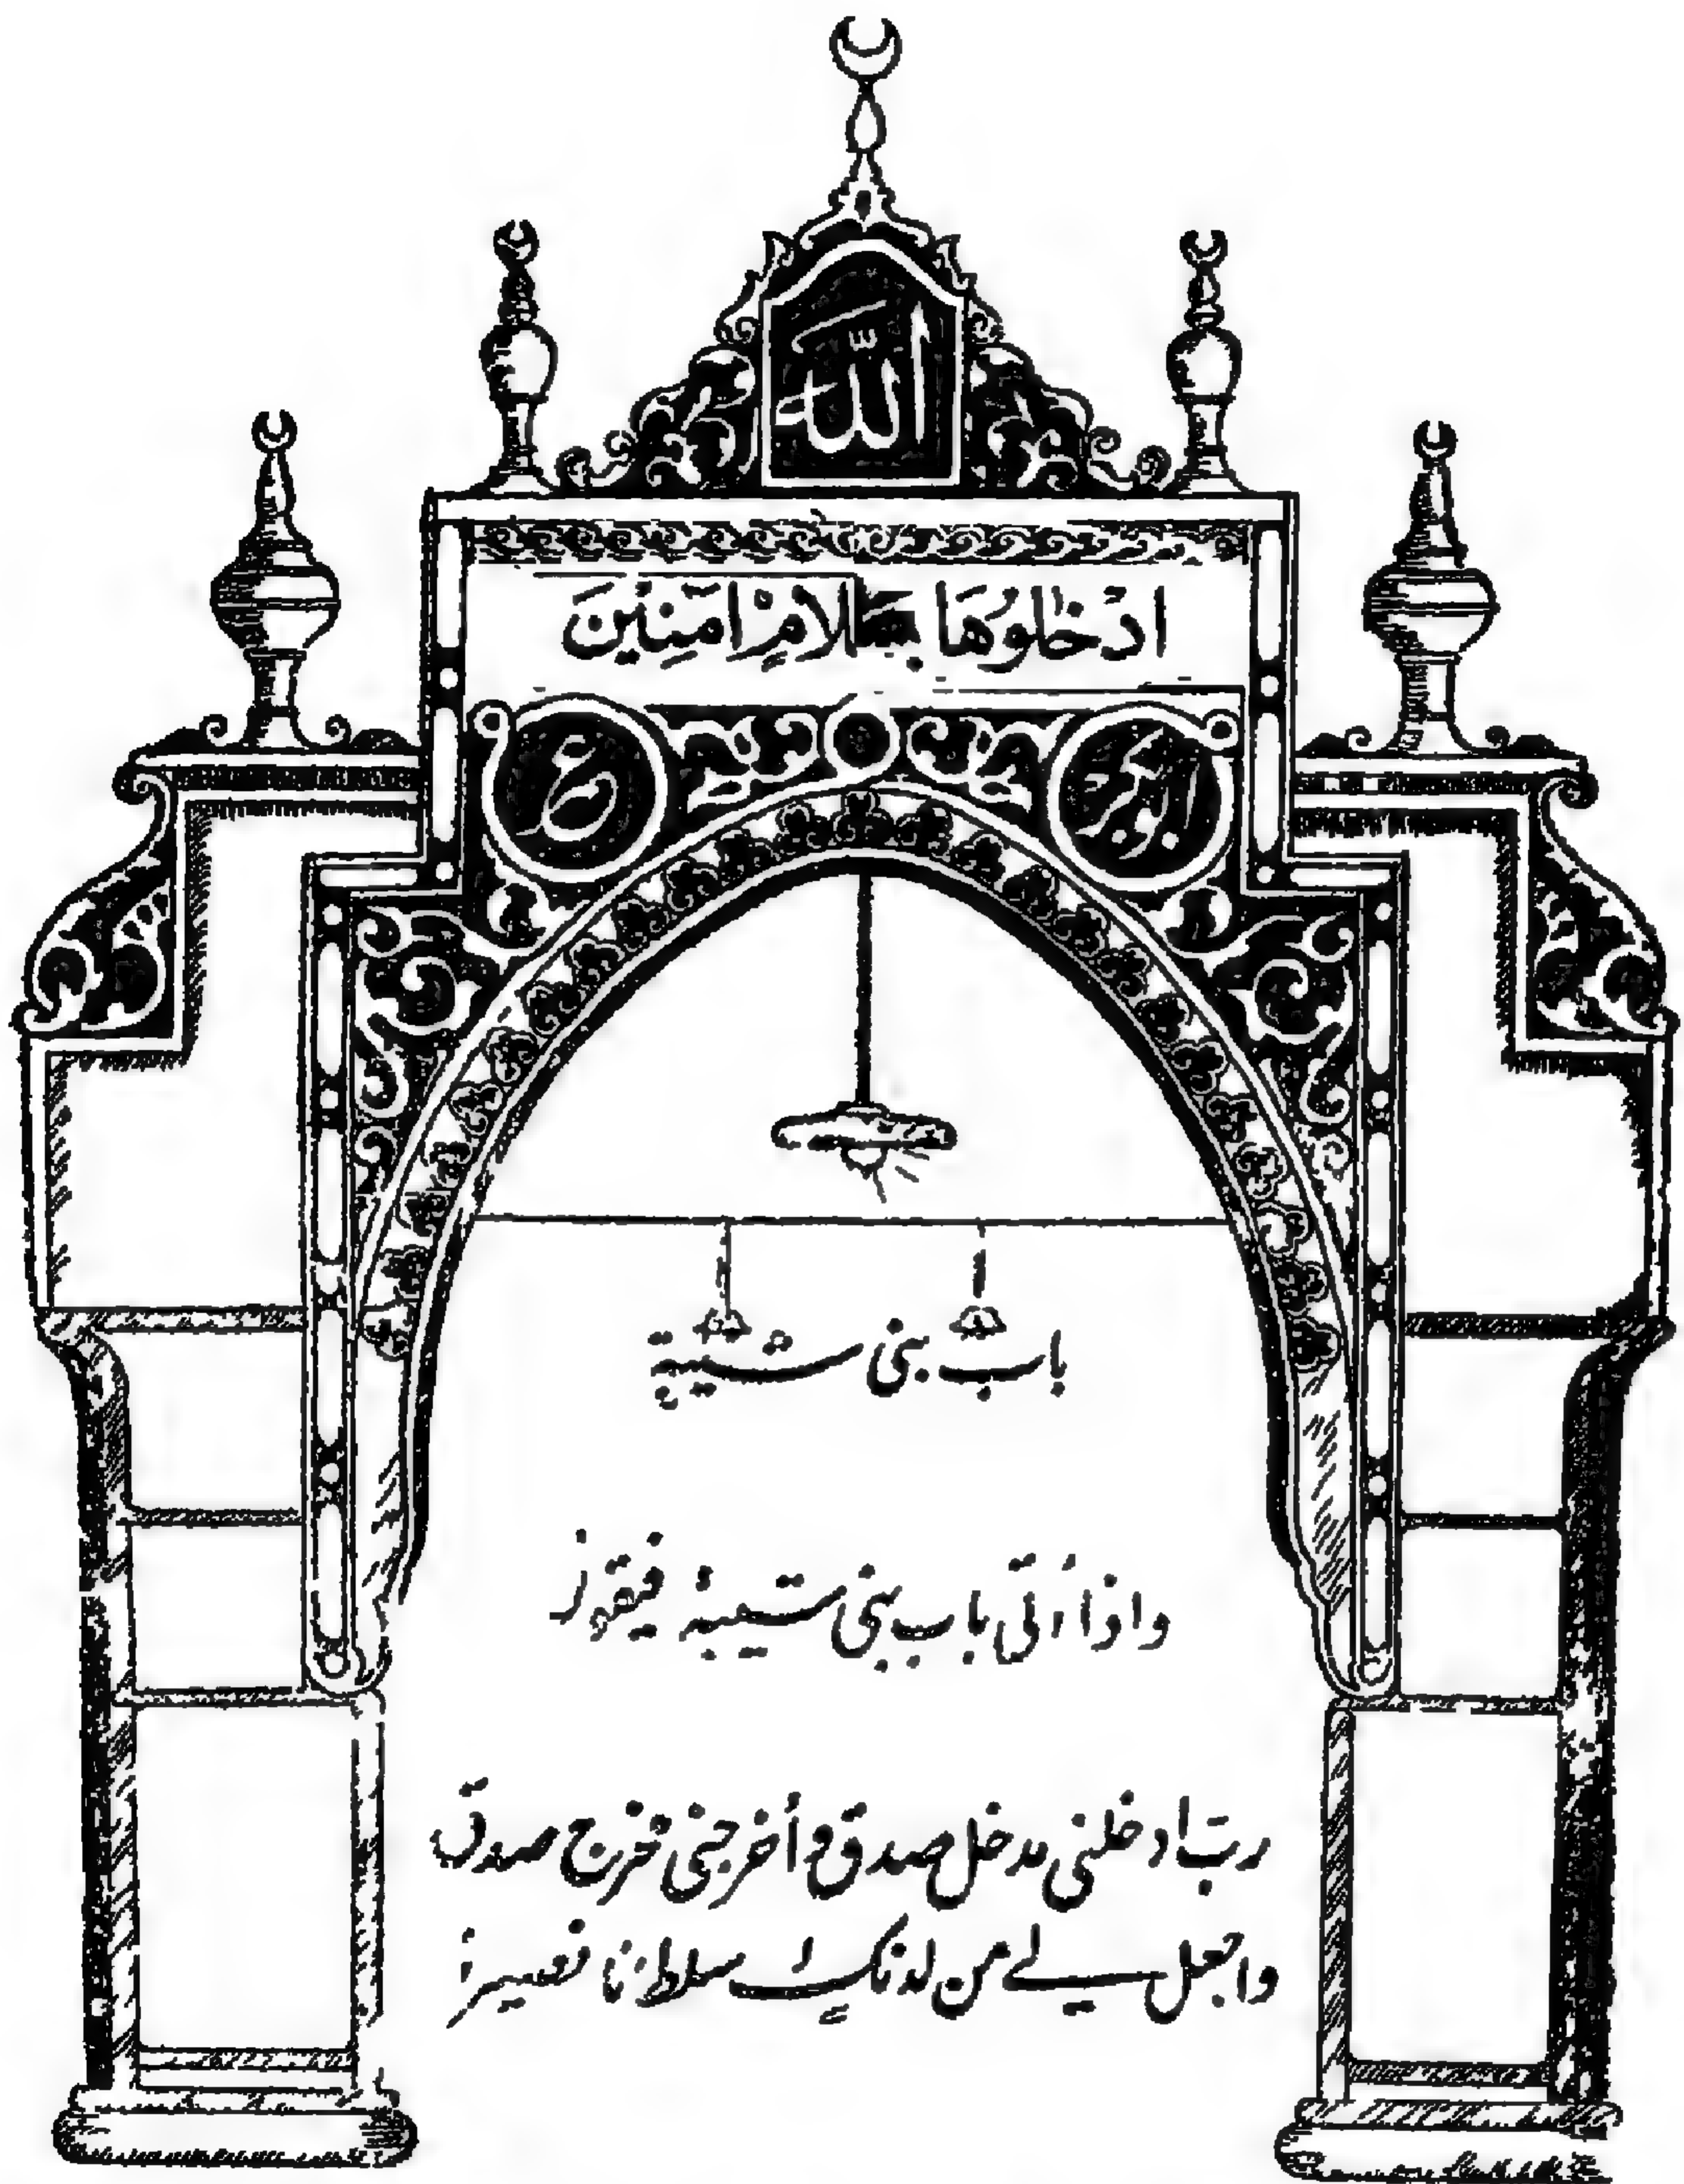 الله
ادْخُلُوهَا بِسَلَامٍ آمِنِينَ
أبو بكر
عمر
باب بني شيبة
واذا أتى باب بني شيبة فيقول
ربّ ادخلني مدخل صدق وأخرجني مخرج صدق
واجعل لي من لدنك سلطانا نصيرا